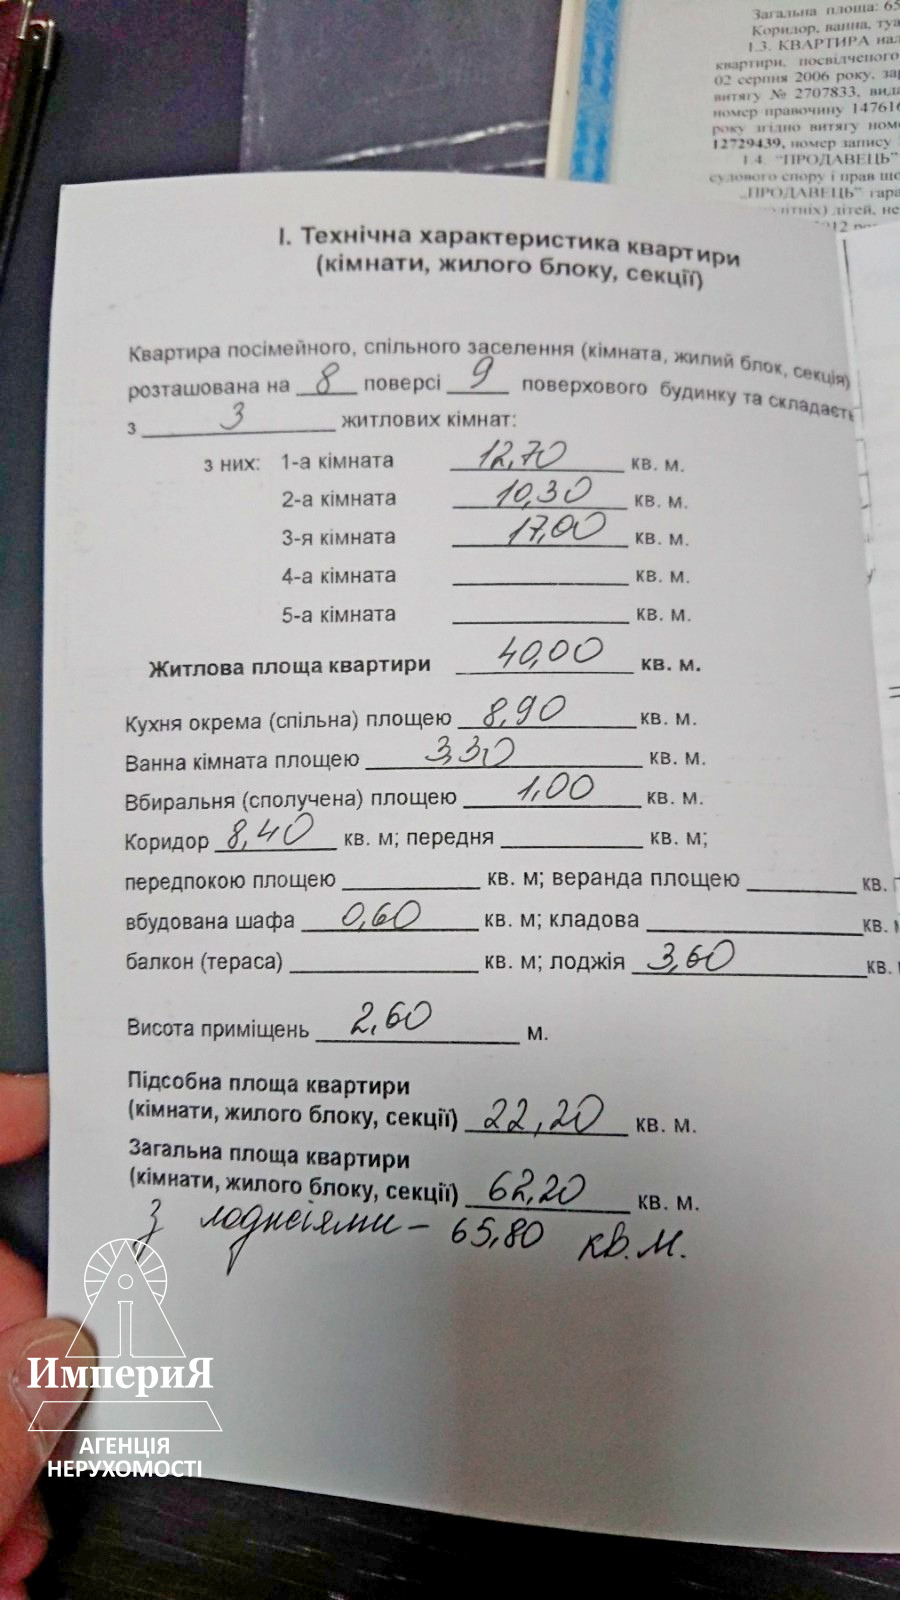 Загальна площа: 65
Коридор, ванна, туа
1.3. КВАРТИРА нал
квартири, посвідченого
02 серпня 2006 року, зар
витягу № 2707833, вида
номер правочину 147616
року згідно витягу номе
12729439, номер запису
1.4. "ПРОДАВЕЦЬ"
судового спору і прав що
„ПРОДАВЕЦЬ" гара
літніх) дітей, не
І. Технічна характеристика квартири
(кімнати, жилого блоку, секції)
Квартира посімейного, спільного заселення (кімната, жилий блок, секція)
розташована на 8 поверсі 9 поверхового будинку та складаєть
з 3 житлових кімнат:
з них: 1-а кімната 12,70 кв. м.
2-а кімната 10,30 кв. м.
3-я кімната 17,00 кв. м.
4-а кімната кв. м.
5-а кімната кв. м.
Житлова площа квартири 40,00 кв. м.
Кухня окрема (спільна) площею 8,90 кв. м.
Ванна кімната площею 3,30 кв. м.
Вбиральня (сполучена) площею 1,00 кв. м.
Коридор 8,40 кв. м; передня кв. м;
передпокою площею кв. м; веранда площею кв.
вбудована шафа 0,60 кв. м; кладова кв.
балкон (тераса) кв. м; лоджія 3,60 кв.
Висота приміщень 2,60 м.
Підсобна площа квартири
(кімнати, жилого блоку, секції) 22,20 кв. м.
Загальна площа квартири
(кімнати, жилого блоку, секції) 62,20 кв. м.
З лоджіями – 65,80 кв. м.
ИмпериЯ
АГЕНЦІЯ
НЕРУХОМОСТІ